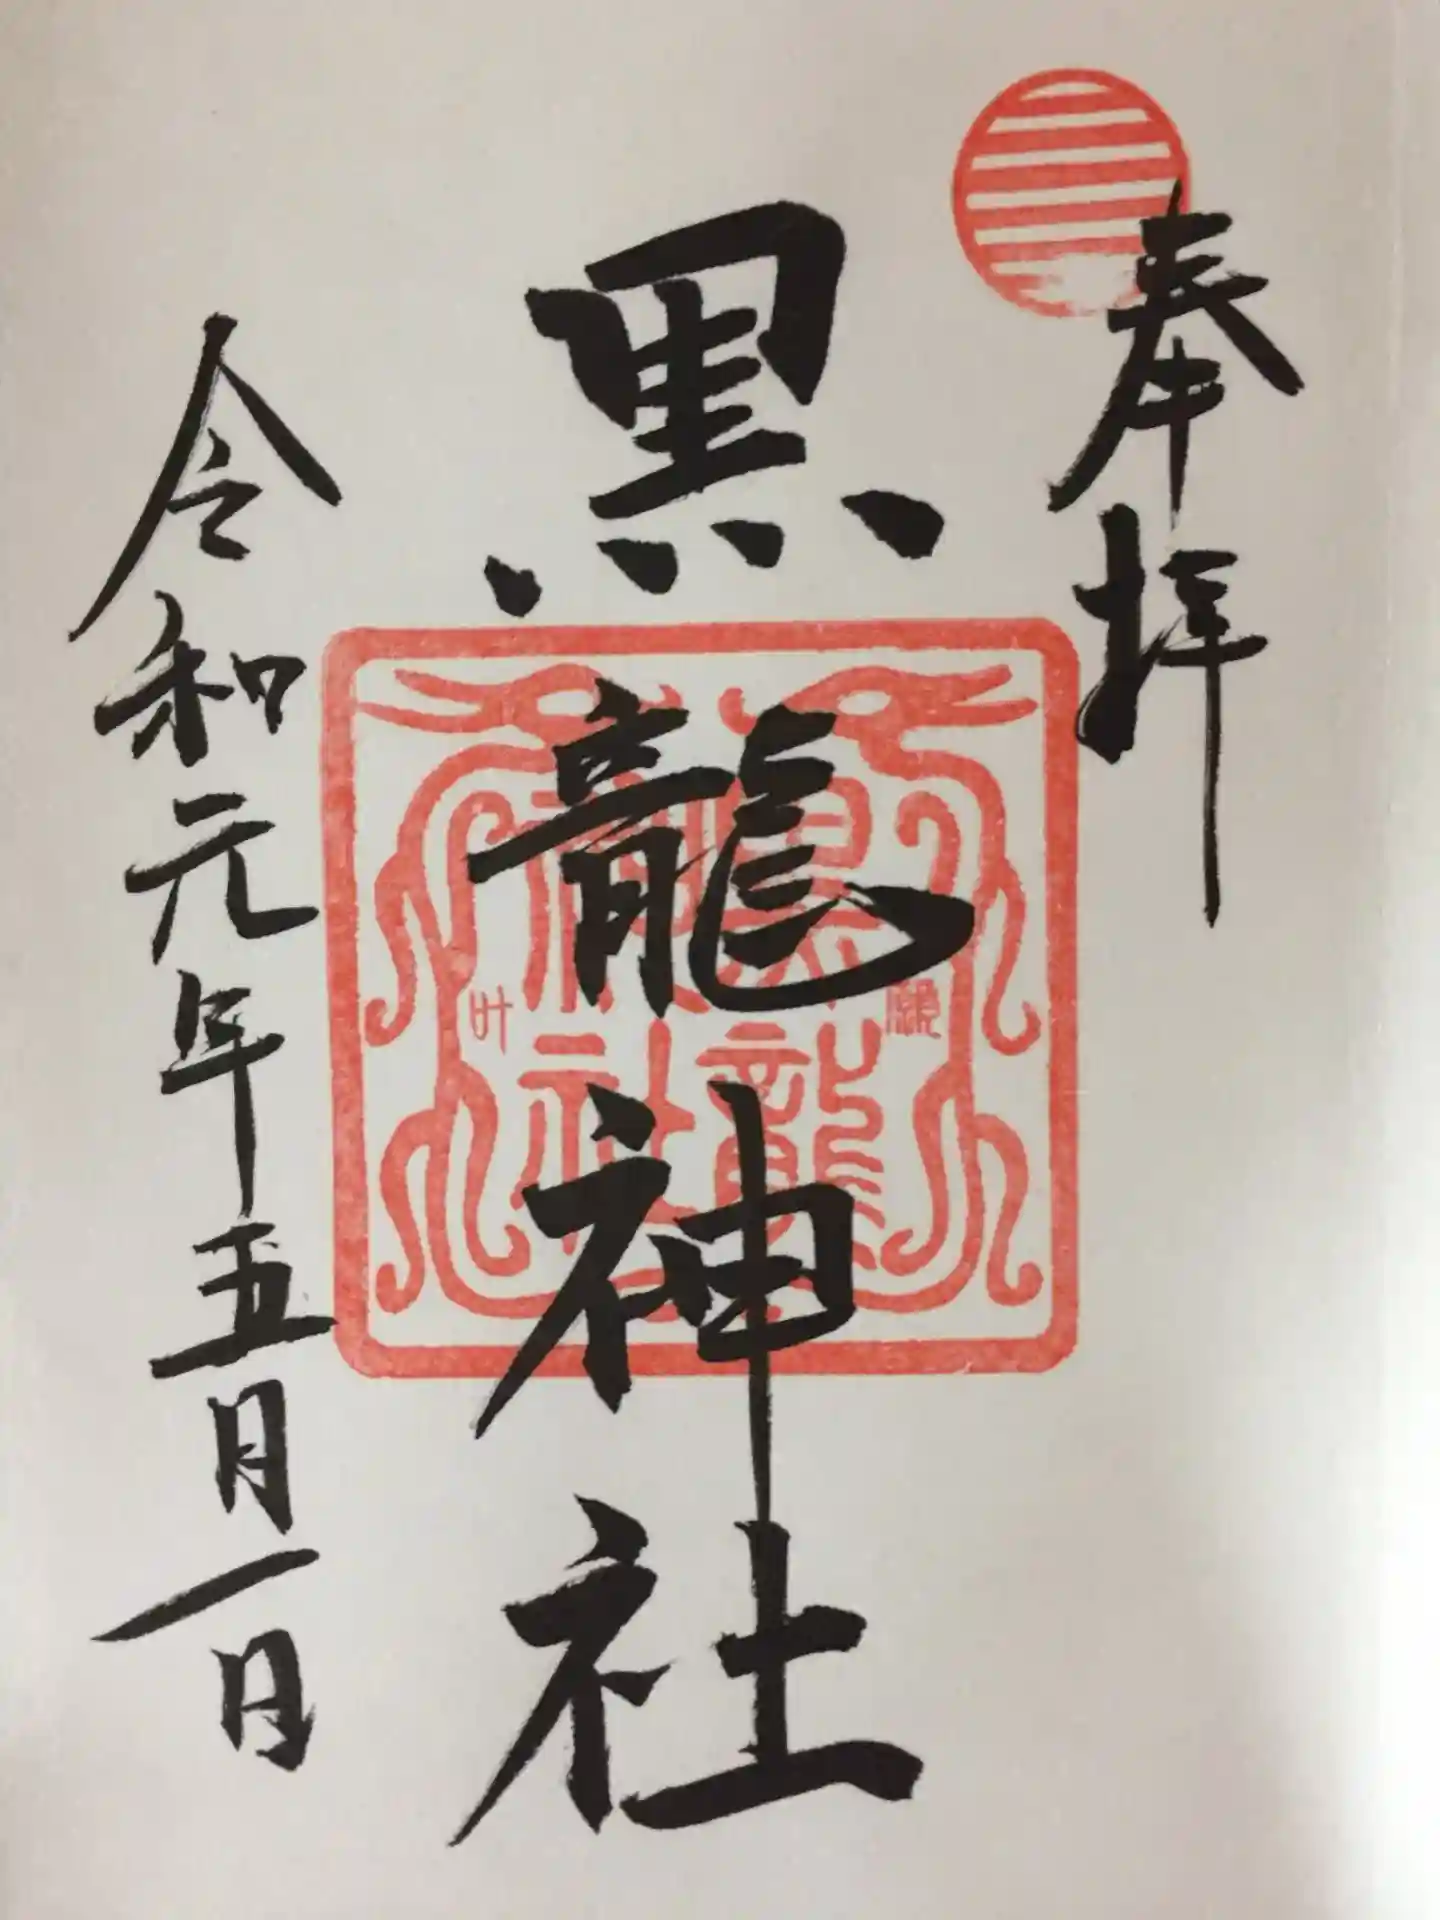 奉拝
黒龍神社
令和元年五月一日
黒龍
神社
願
叶